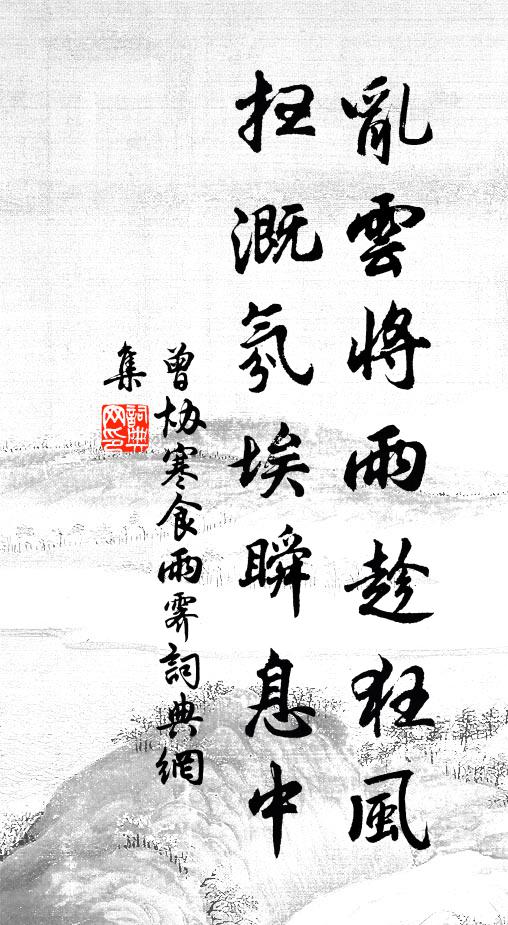 亂雲將雨趁狂風
抂溉氛埃瞬息中
曾协寒食雨霁詞典網
集
詞典
网印